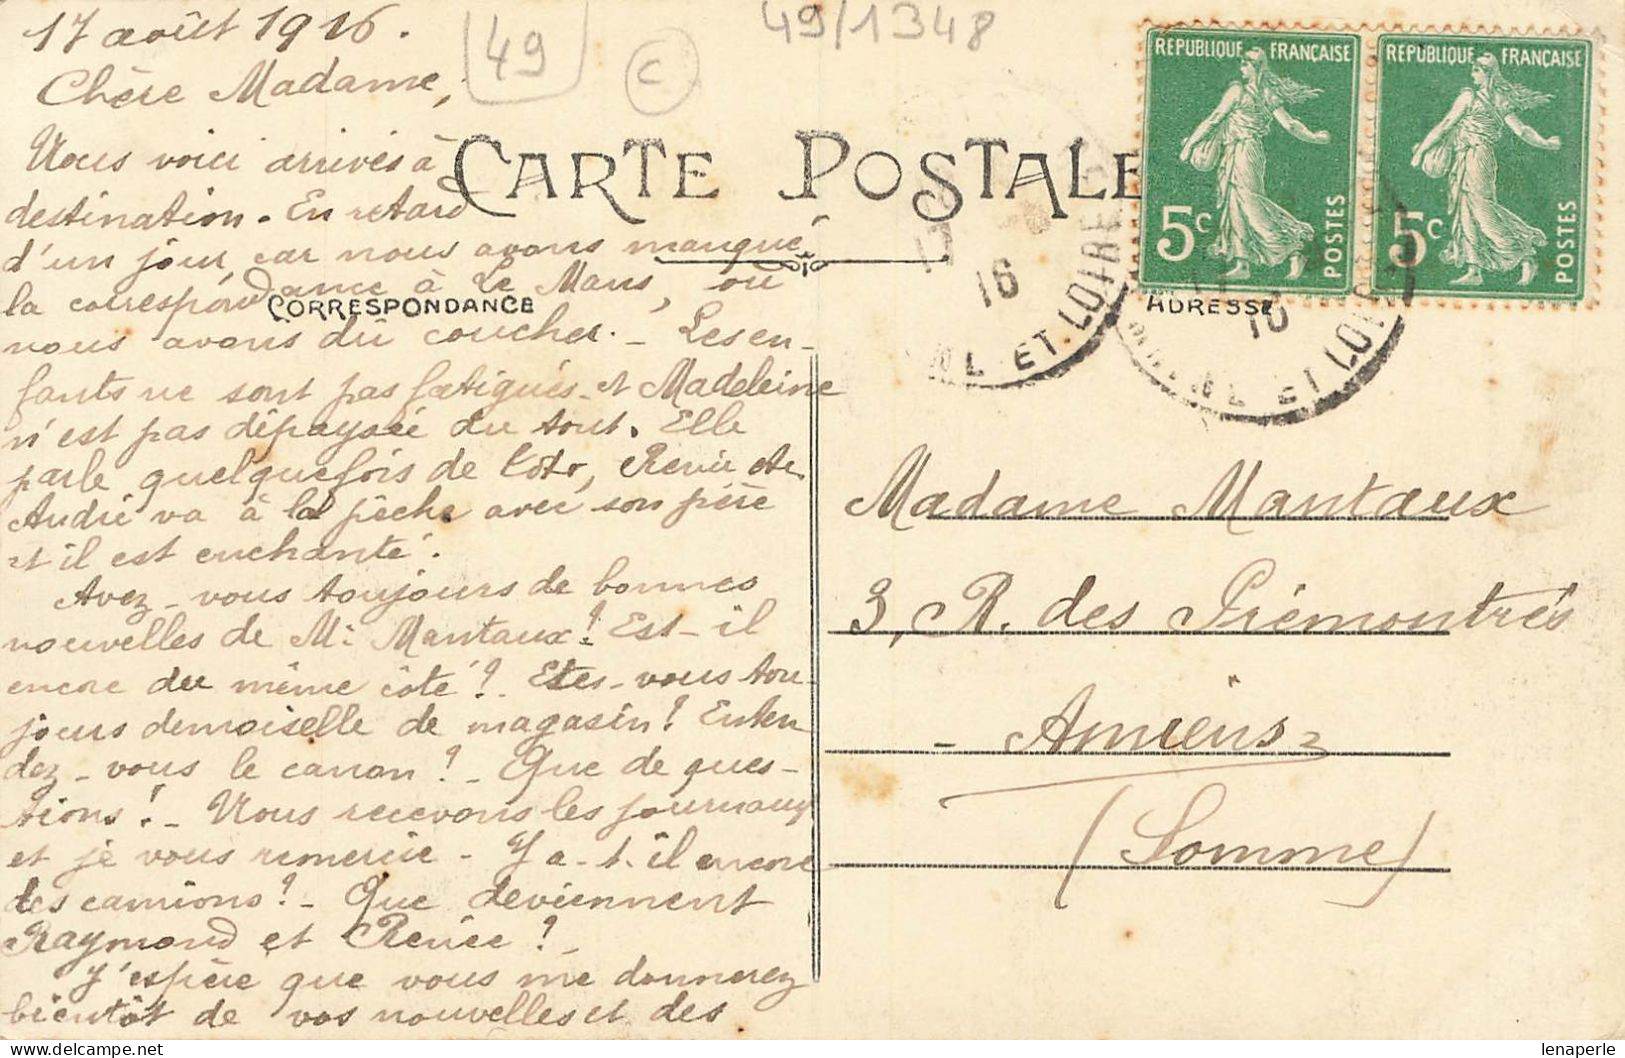 17 août 1916.
49
C
49/1348
Chère Madame,
Nous voici arrivés à
destination. En retard
d'un jour, car nous avons manqué
la correspondance à Le Mans, où
nous avons dû coucher. - Les en-
fants ne sont pas fatigués et Madeleine
n'est pas dépaysée du tout. Elle
parle quelquefois de Coto, Renée etc
André va à la pêche avec son père
et il est enchanté.
Avez-vous toujours de bonnes
nouvelles de Mr Mantaux? Est-il
encore du même côté? Etes-vous tou-
jours demoiselle de magasin? Enten
dez-vous le canon? - Que de ques-
tions! - Nous recevons les journaux
et je vous remercie - Y a-t-il encore
des camions? - Que deviennent
Raymond et Renée? -
J'espère que vous me donnerez
bientôt de vos nouvelles et des
CARTE POSTALE
CORRESPONDANCE
ADRESSE
REPUBLIQUE FRANÇAISE
5c
POSTES
REPUBLIQUE FRANÇAISE
5c
POSTES
16
ET LOIRE
16
ET LOIRE
Madame Mantaux
3, R. des Prémontrés
- Amiens -
(Somme)
lenaperle